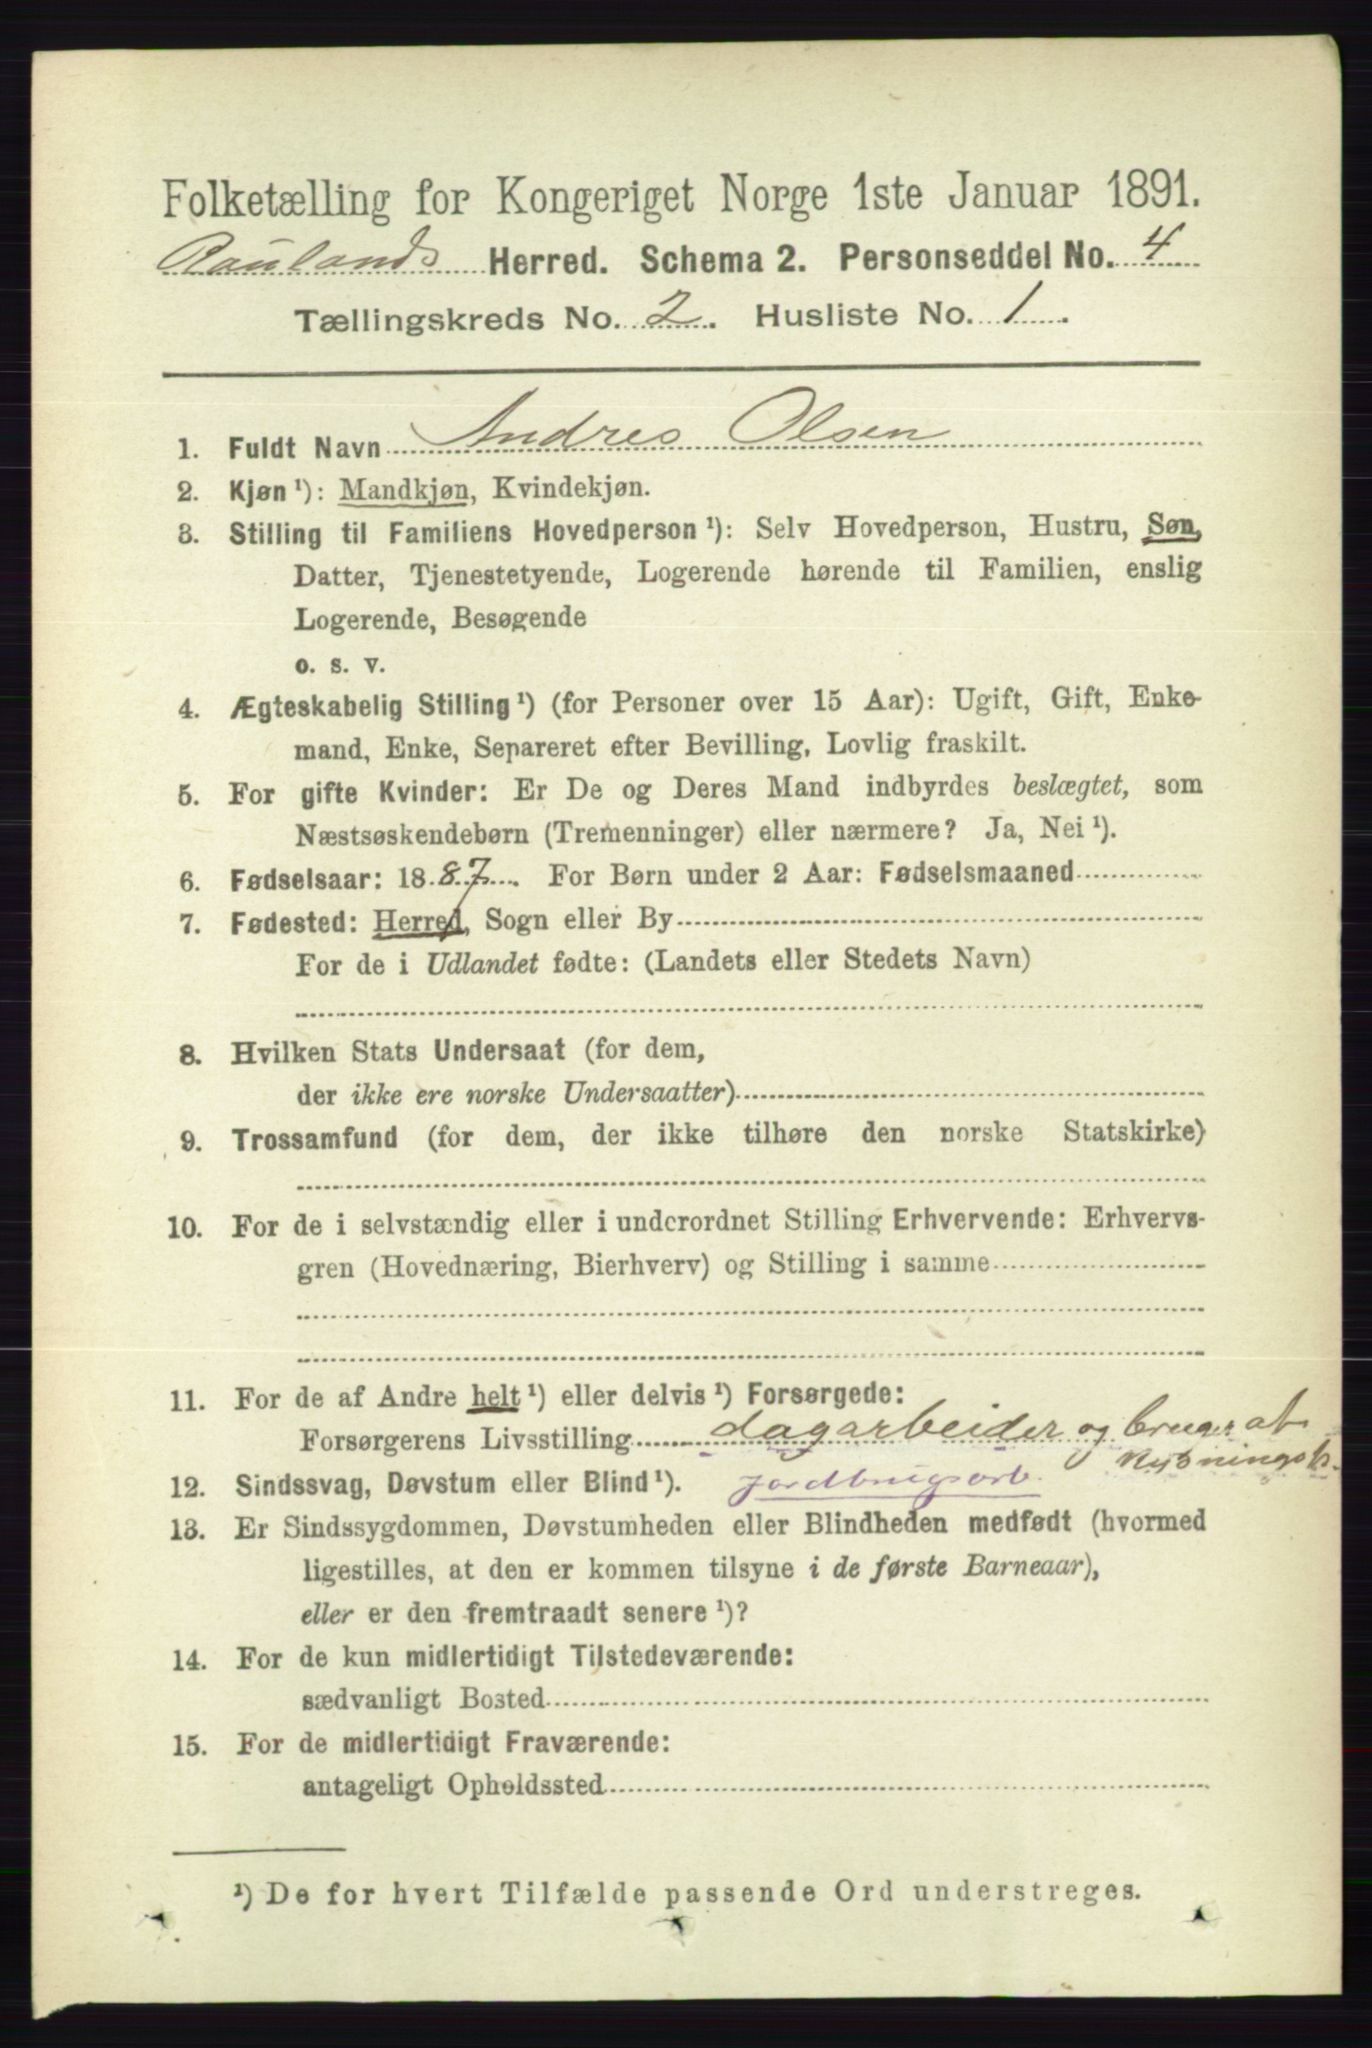 Folketælling for Kongeriget Norge 1ste Januar 1891.
Raulands Herred. Schema 2. Personseddel No. 4
Tællingskreds No. 2. Husliste No. 1.
1. Fuldt Navn Andres Olsen
2. Kjøn ¹): Mandkjøn, Kvindekjøn.
3. Stilling til Familiens Hovedperson ¹): Selv Hovedperson, Hustru, Søn,
Datter, Tjenestetyende, Logerende hørende til Familien, enslig
Logerende, Besøgende
o. s. v.
4. Ægteskabelig Stilling ¹) (for Personer over 15 Aar): Ugift, Gift, Enke-
mand, Enke, Separeret efter Bevilling, Lovlig fraskilt.
5. For gifte Kvinder: Er De og Deres Mand indbyrdes beslægtet, som
Næstsøskendebørn (Tremenninger) eller nærmere? Ja, Nei ¹).
6. Fødselsaar: 1887. For Børn under 2 Aar: Fødselsmaaned
7. Fødested: Herred, Sogn eller By
For de i Udlandet fødte: (Landets eller Stedets Navn)
8. Hvilken Stats Undersaat (for dem,
der ikke ere norske Undersaatter)
9. Trossamfund (for dem, der ikke tilhøre den norske Statskirke)
10. For de i selvstændig eller i underordnet Stilling Erhvervende: Erhvervs-
gren (Hovednæring, Bierhverv) og Stilling i samme
11. For de af Andre helt ¹) eller delvis ¹) Forsørgede:
Forsørgerens Livsstilling dagarbeider og bruger at
Rydningspl.
12. Sindssvag, Døvstum eller Blind ¹). jordbrugsarb.
13. Er Sindssygdommen, Døvstumheden eller Blindheden medfødt (hvormed
ligestilles, at den er kommen tilsyne i de første Barneaar),
eller er den fremtraadt senere ¹)?
14. For de kun midlertidigt Tilstedeværende:
sædvanligt Bosted
15. For de midlertidigt Fraværende:
antageligt Opholdssted
¹) De for hvert Tilfælde passende Ord understreges.